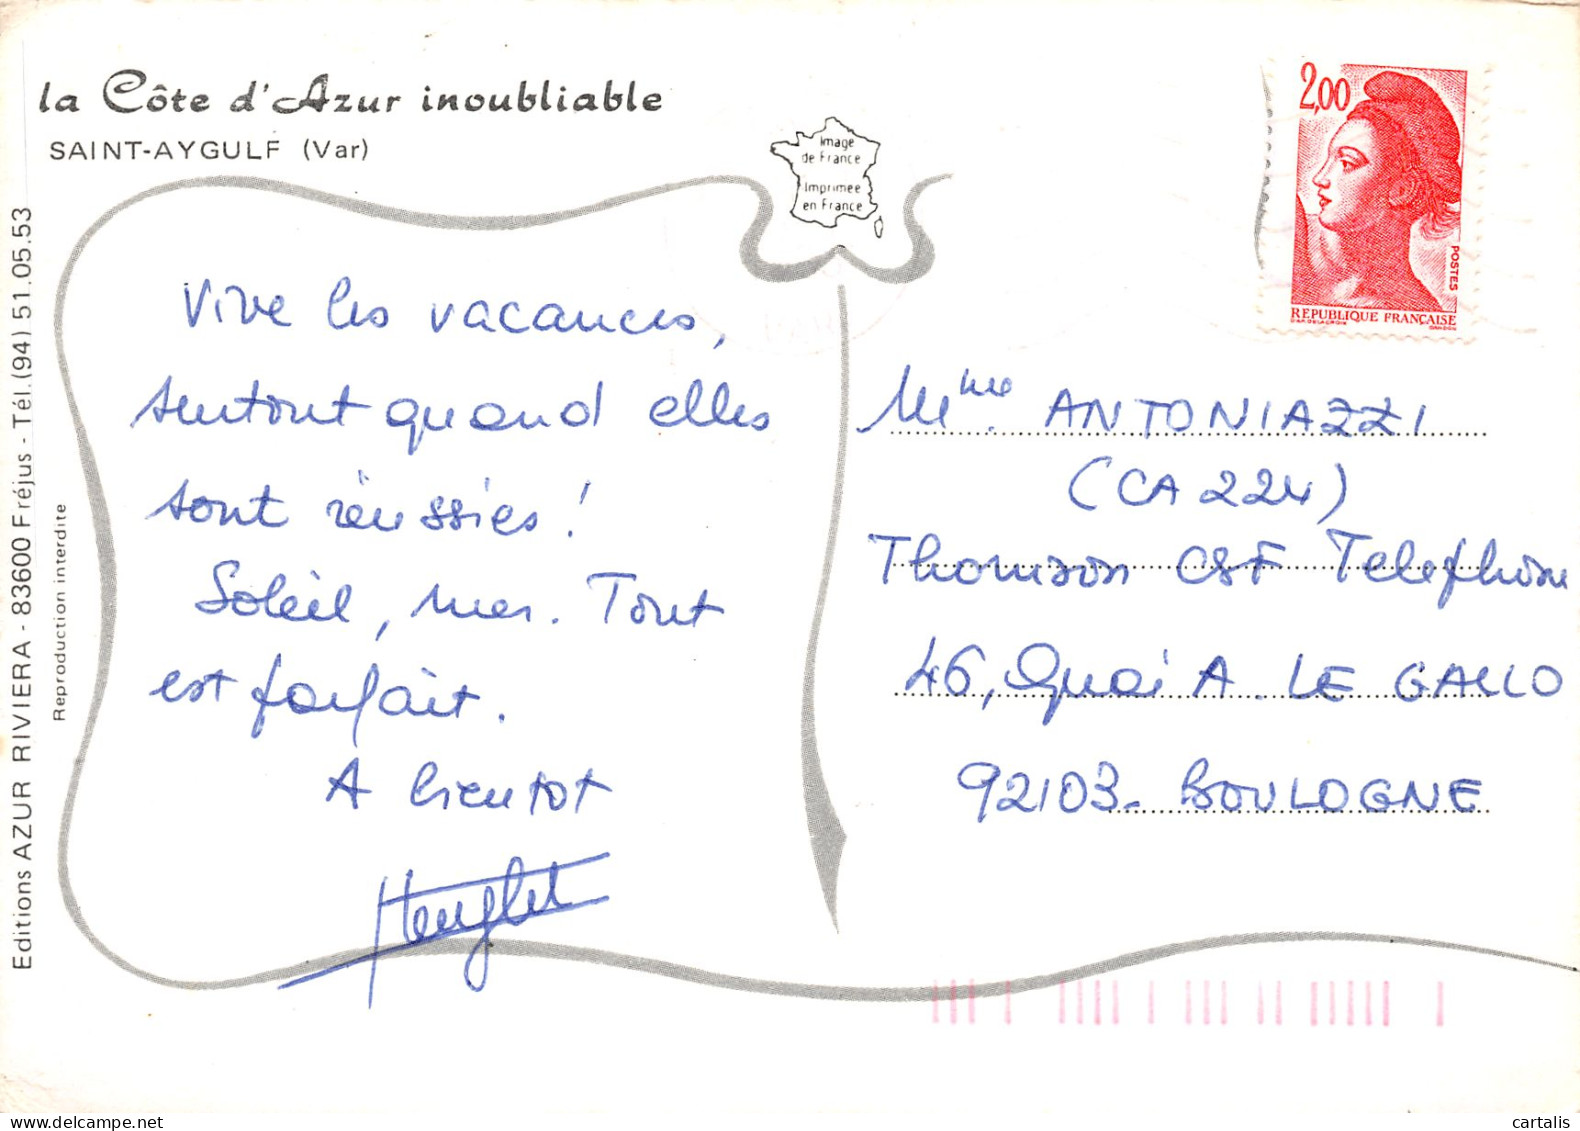 la Côte d'Azur inoubliable
SAINT-AYGULF (Var)
Image
de France
Imprimée
en France
2,00
POSTES
REPUBLIQUE FRANÇAISE
Editions AZUR RIVIERA - 83600 Fréjus - Tél. (94) 51.05.53
Reproduction interdite
Vive les vacances,
surtout quand elles
sont réussies !
Soleil, mer. Tout
est parfait.
A bientot
Mme. ANTONIAZZI
(CA 224)
Thomson CSF Telephone
46, Quai A. LE GALLO
92103 - BOULOGNE
cartalis